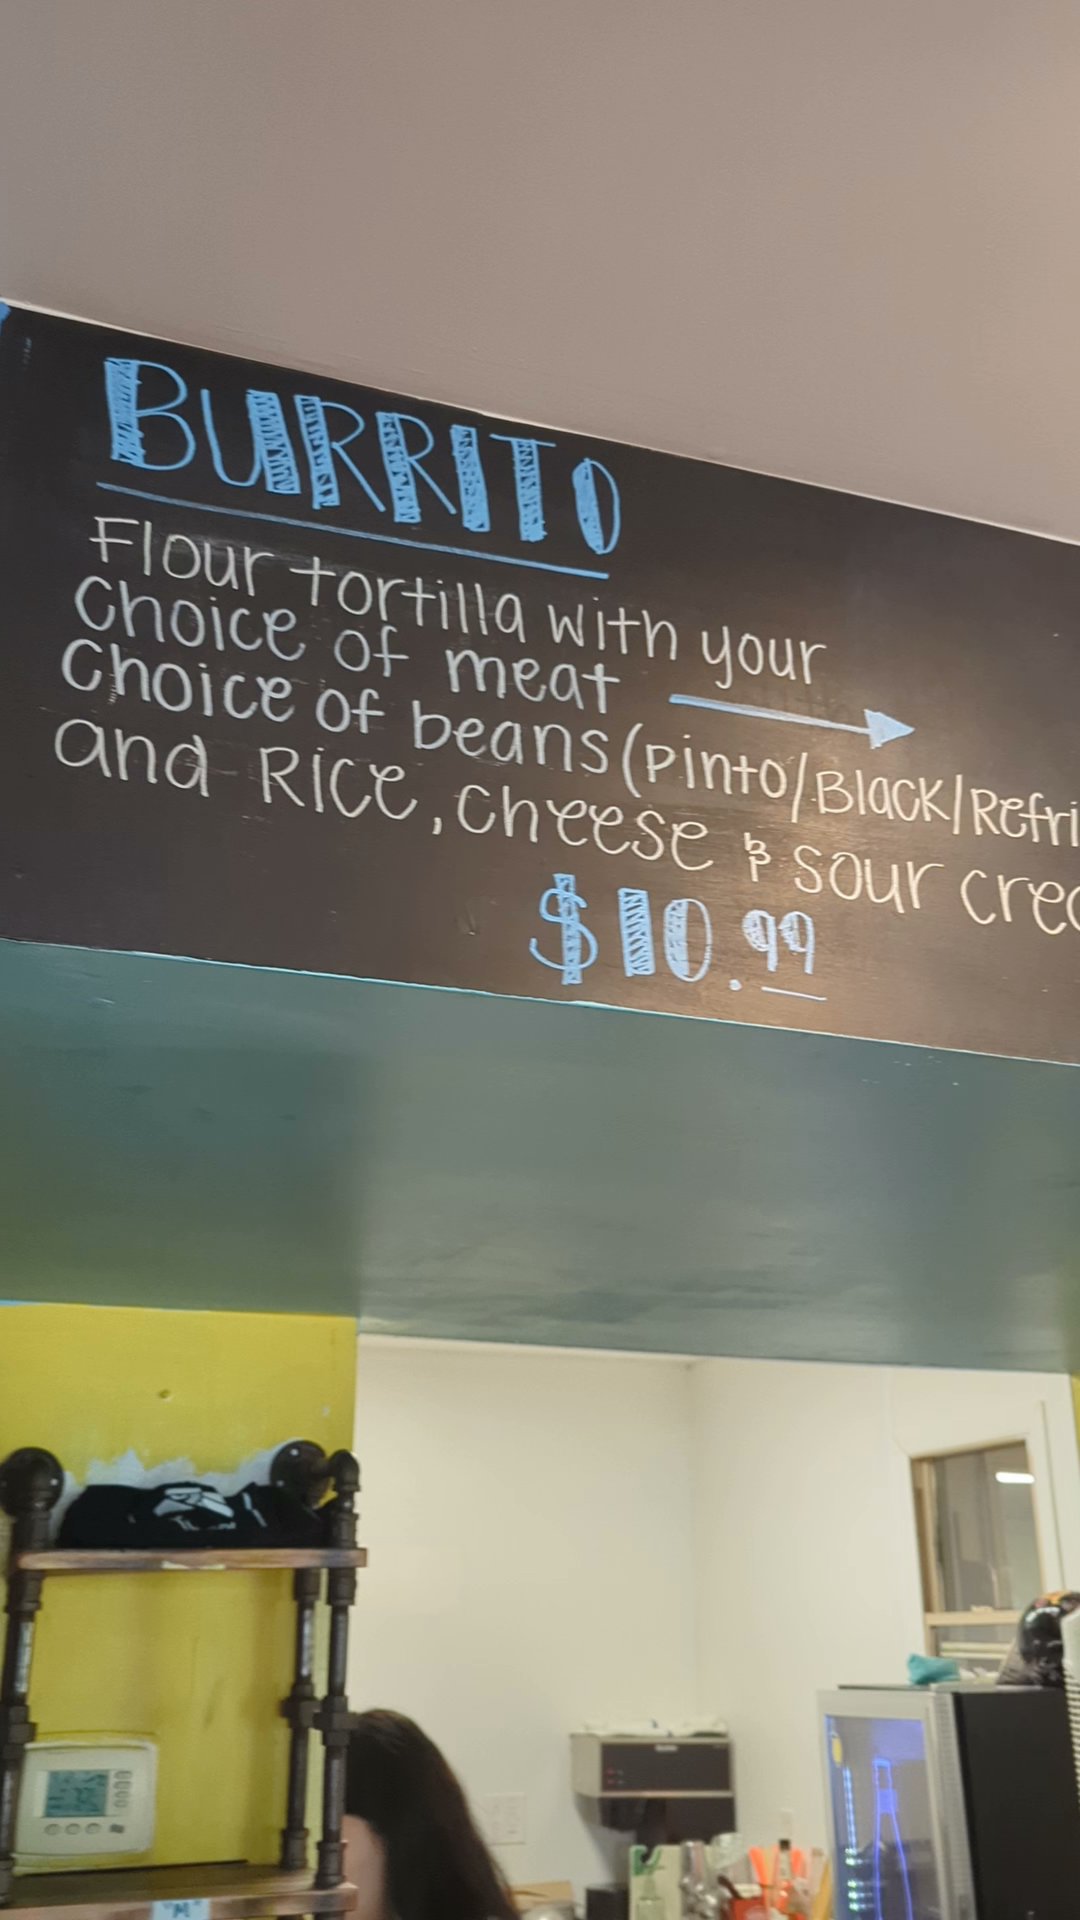 BURRITO
Flour tortilla with your
choice of meat →
choice of beans (pinto/Black/Refri
and Rice, cheese & sour crea
$10.99
"M"